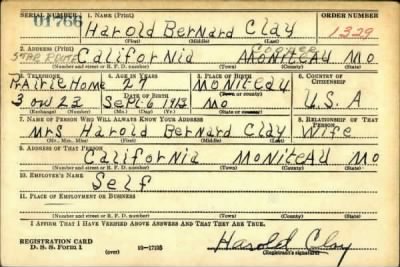 SERIAL NUMBER 1. NAME (Print) ORDER NUMBER
01766 Harold Bernard Clay 1329
(First) (Middle) (Last)
2. ADDRESS (Print)
Star Route California Cooper Moniteau Mo
(Number and street or R. F. D. number) (Town) (County) (State)
3. TELEPHONE 4. AGE IN YEARS 5. PLACE OF BIRTH 6. COUNTRY OF CITIZENSHIP
Prairie Home 27 Moniteau
DATE OF BIRTH (Town or county)
3 on 23 Sept 6 1913 Mo U.S.A
(Mo.) (Day) (Yr.) (State or country)
7. NAME OF PERSON WHO WILL ALWAYS KNOW YOUR ADDRESS 8. RELATIONSHIP OF THAT PERSON
Mrs Harold Bernard Clay Wife
(Mr., Mrs., Miss) (First) (Middle) (Last)
9. ADDRESS OF THAT PERSON
California Moniteau Mo
(Number and street or R. F. D. number) (Town) (County) (State)
10. EMPLOYER'S NAME
Self
11. PLACE OF EMPLOYMENT OR BUSINESS
(Number and street or R. F. D. number) (Town) (County) (State)
I AFFIRM THAT I HAVE VERIFIED ABOVE ANSWERS AND THAT THEY ARE TRUE.
REGISTRATION CARD
D. S. S. Form 1 (over) 16-17105 Harold Clay
(Registrant's signature)